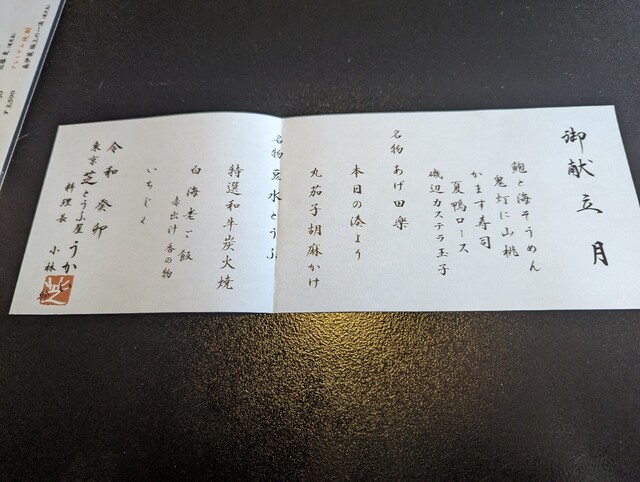 御献立 月
鮑と海そうめん
鬼灯に山桃
かます寿司
夏鴨ロース
磯辺カステラ玉子
名物 あげ田楽
本日の湊より
丸茄子胡麻かけ
名物 豆水とうふ
特選和牛炭火焼
白海老ご飯
赤出汁 香の物
いちじく
令和 癸卯
東京 芝とうふ屋うかい
料理長 小林
¥3,500